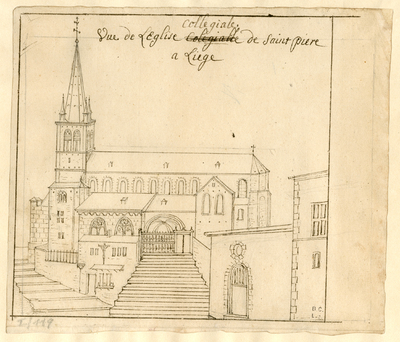 Collegiale
Vue de L'Eglise Colegialle de Saint Piere
a Liege
I/119.